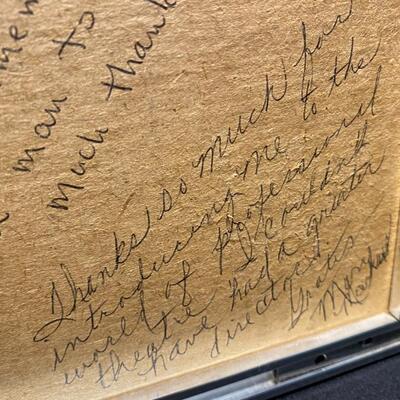 mem
man to
much thank
Thanks so much for
introducing me to the
world of professional
theatre. I couldn't
have had a greater
director!
Gratis